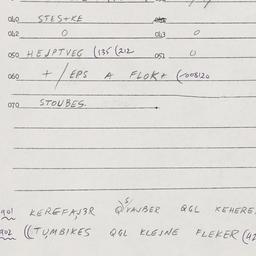 040 STES+KE
042 0 043 0
050 HEJPTVEG (135 (212 051 0
060 + / EPS A FLOKA (-008120
070 STOUBES.
901 KEREFAJ3R QGL KEHERE
902 ((TUMBIKES QGL KLEJNE FLEKER (42